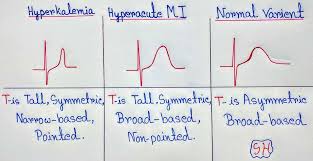 Hyperkalemia
Hyperacute MI
Normal Varient
T-is Tall, Symmetric,
Narrow-based,
Pointed.
T-is Tall, Symmetric,
Broad-based,
Non-pointed.
T- is Asymmetric
Broad-based
SH